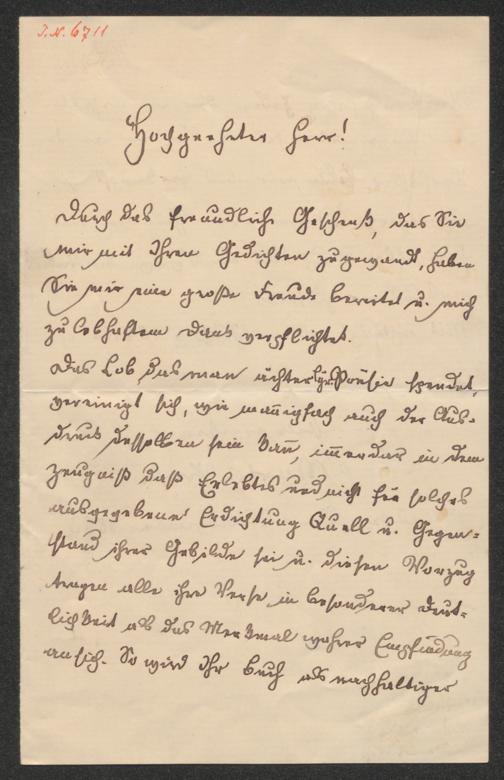 J.N. 6711
Hochgeehrter Herr!
Durch das freundliche Geschenk, das Sie
mir mit Ihren Gedichten zugewandt, haben
Sie mir eine große Freude bereitet u. mich
zu lebhaftem Dank verpflichtet.
Das Lob, das man ächter lyr. Poesie spendet,
vereinigt sich, wie mañigfach auch der Aus-
druck desselben sein kañ, im̃erdar in dem
Zeugniß daß Erlebtes und nicht für solches
ausgegebene Erdichtung Quell u. Gegen-
stand ihrer Gebilde sei u. diesen Vorzug
tragen alle ihre Verse in besonderer Deut-
lichkeit als das Merkmal wahrer Empfindung
an sich. So wird Ihr Buch als nachhaltiger